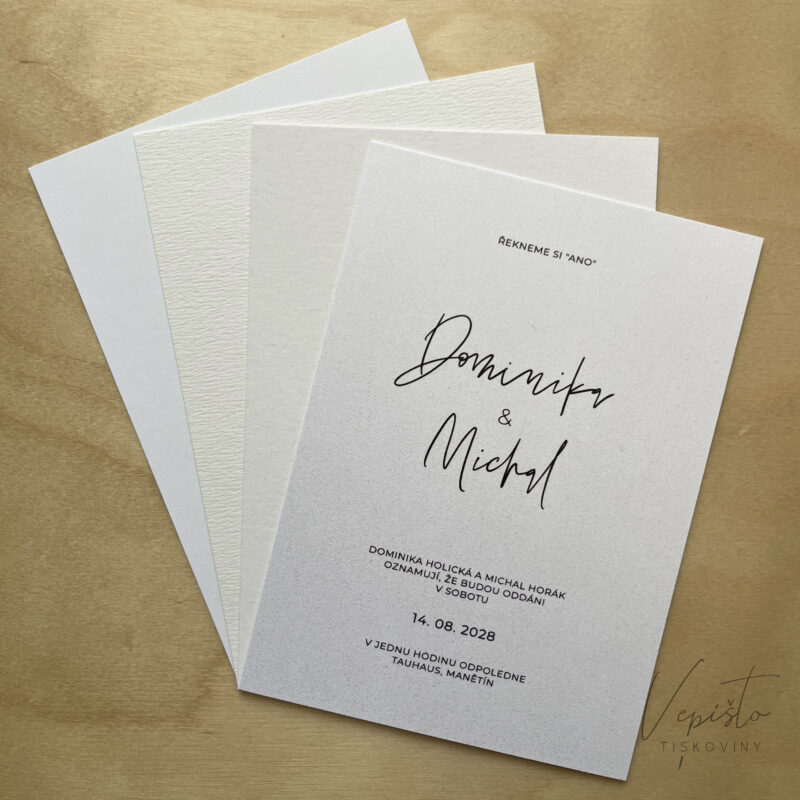 ŘEKNEME SI "ANO"
Dominika
&
Michal
DOMINIKA HOLICKÁ A MICHAL HORÁK
OZNAMUJÍ, ŽE BUDOU ODDÁNI
V SOBOTU
14. 08. 2028
V JEDNU HODINU ODPOLEDNE
TAUHAUS, MANĚTÍN
Vepišto
TISKOVINY